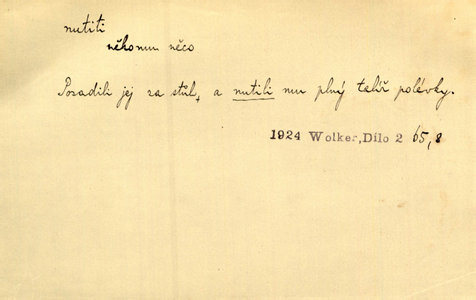 nutiti
někomu něco
Posadili jej za stůl, a nutili mu plný talíř polévky.
1924 Wolker, Dílo 2 65,8